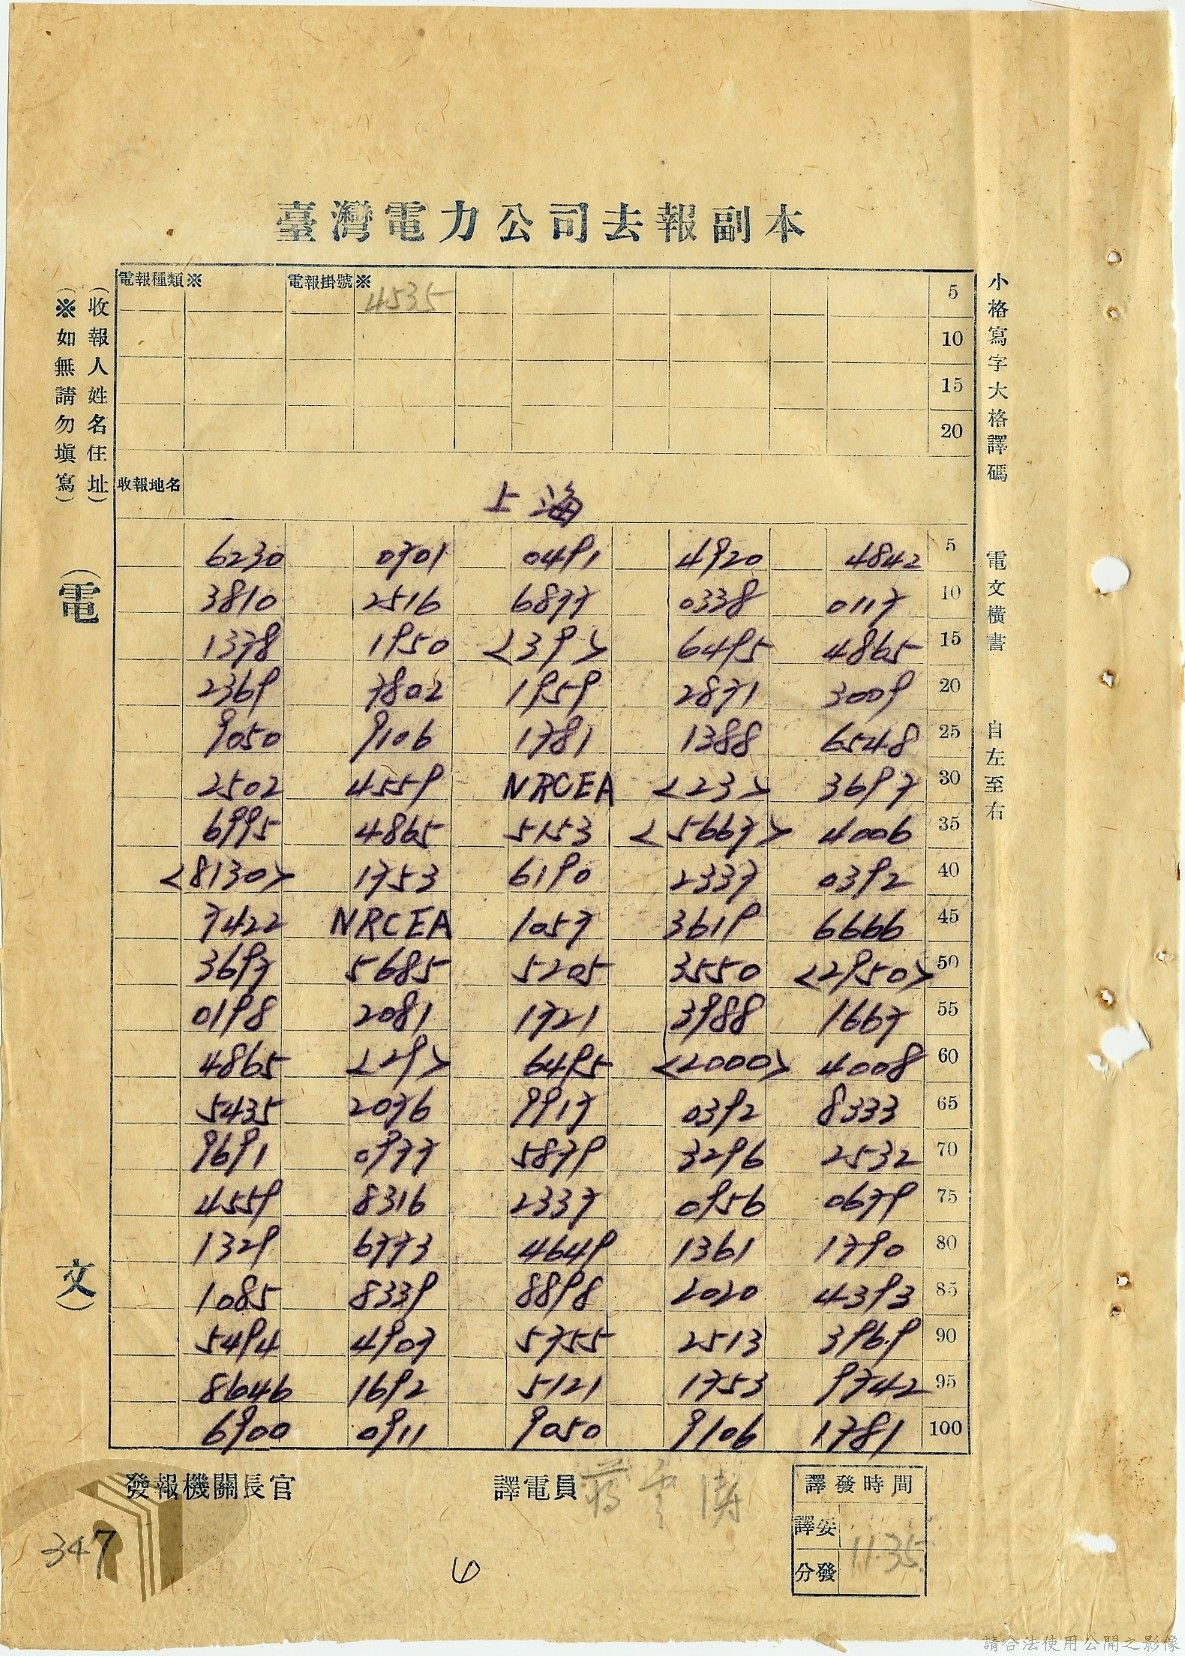 臺灣電力公司去報副本
電報種類※ 電報掛號※ 4535 5
10
15
20
小格寫字大格譯碼 電文橫書 自左至右
(收報人姓名住址)
(※如無請勿填寫)
收報地名 上海
(電文)
6230 0701 0491 4920 4842 5
3810 2516 6877 0338 0117 10
1378 1950 <39> 6495 4865 15
2369 7802 1959 2871 3009 20
9050 9106 1781 1388 6548 25
2502 4559 NRCEA <23> 3697 30
6995 4865 5153 <5667> 4006 35
<8130> 1753 6190 2337 0392 40
7422 NRCEA 1057 3619 6666 45
3697 5685 5205 3550 <2950> 50
0198 2081 1721 3988 1667 55
4865 <29> 6495 <2000> 4008 60
5435 2076 9917 0392 8333 65
9691 0977 5879 3296 2532 70
4559 8316 2337 0956 0679 75
1329 6773 4649 1361 1790 80
1085 8339 8898 2020 4393 85
5494 4907 5755 2513 3969 90
8646 1692 5121 1753 9742 95
6900 0911 9050 9106 1781 100
發報機關長官 譯電員 蔣雲濤 譯發時間
譯妥
分發
11.35
347
請合法使用公開之影像